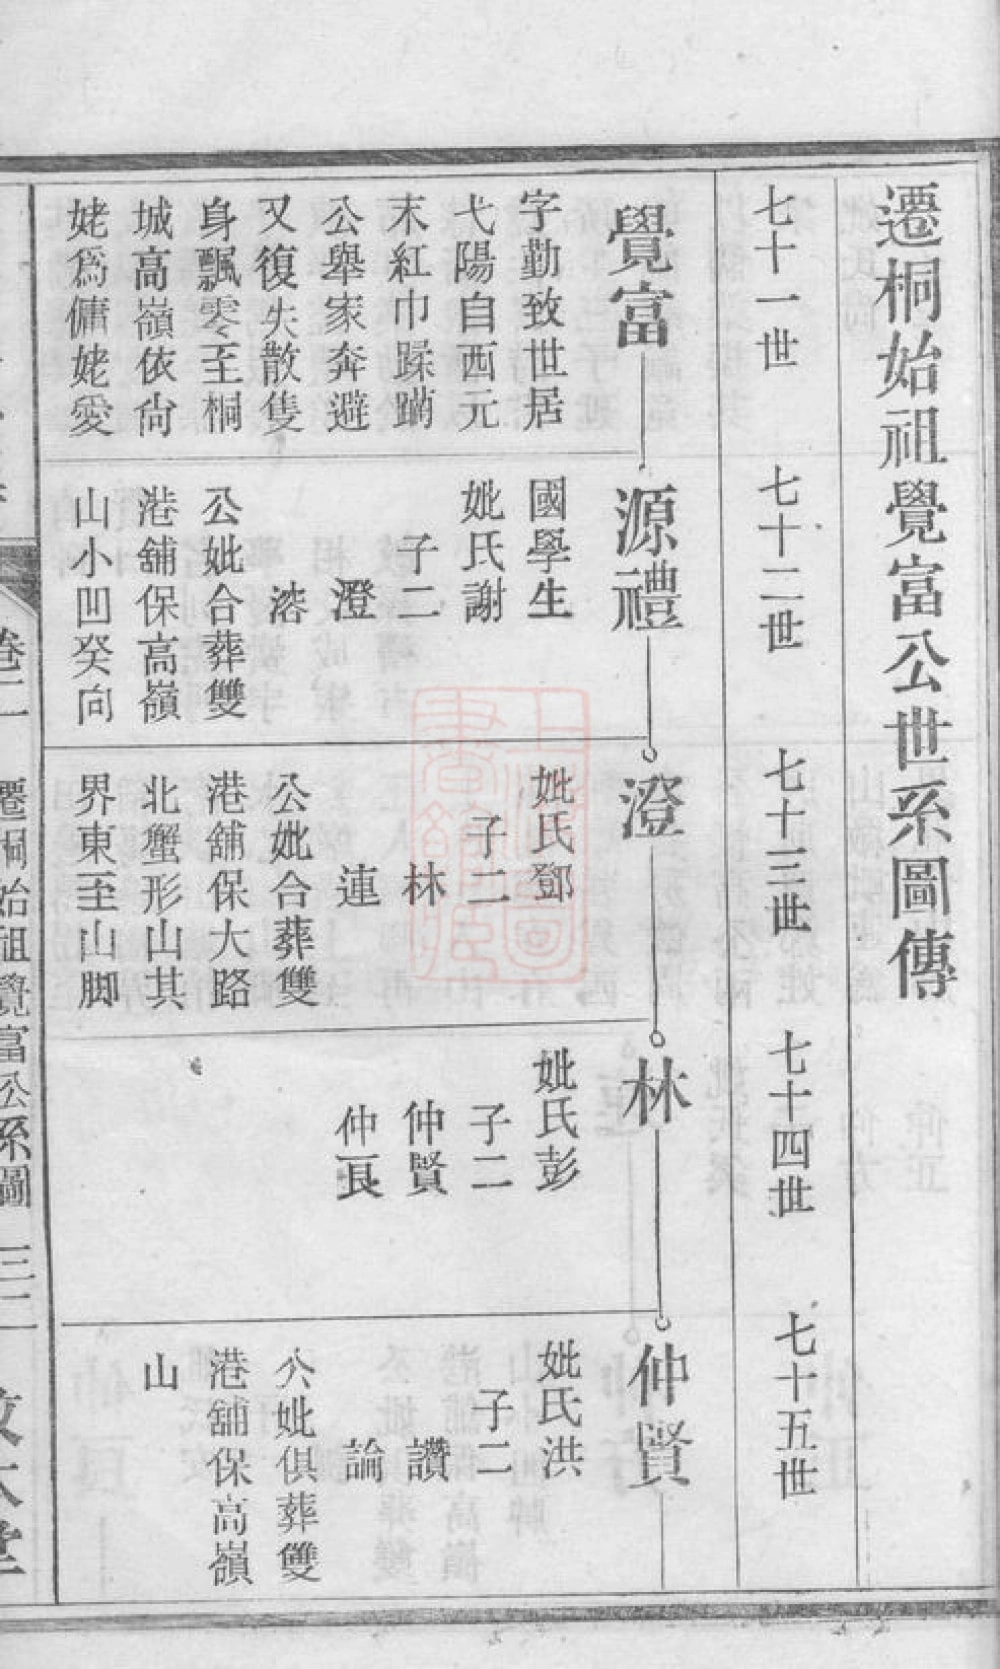 遷桐始祖覺富公世系圖傳
七十一世
七十二世
七十三世
七十四世
七十五世
覺富
字勤致世居
弋陽自西元
末紅巾蹂躪
公舉家奔避
又復失散隻
身飄零至桐
城高嶺依尙
姥爲傭姥愛
源禮
國學生
妣氏謝
子二
澄
溚
公妣合葬雙
港舖保高嶺
山小凹癸向
澄
妣氏鄧
子二
林
連
公妣合葬雙
港舖保大路
北蟹形山其
界東至山脚
林
妣氏彭
子二
仲賢
仲良
仲賢
妣氏洪
子二
讚
論
公妣俱葬雙
港舖保高嶺
山
卷二
遷桐始祖覺富公系圖
三二